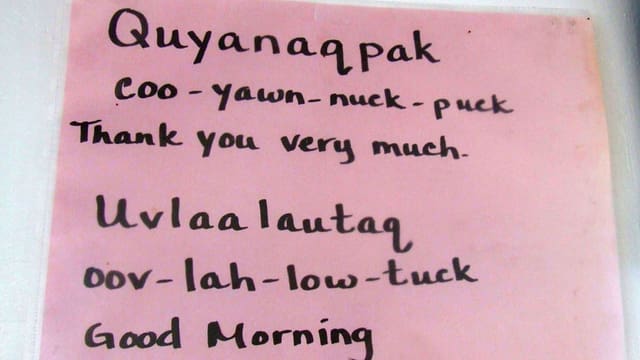 Quyanaqpak
coo-yawn-nuck-puck
Thank you very much.
Uvlaalautaq
oov-lah-low-tuck
Good Morning